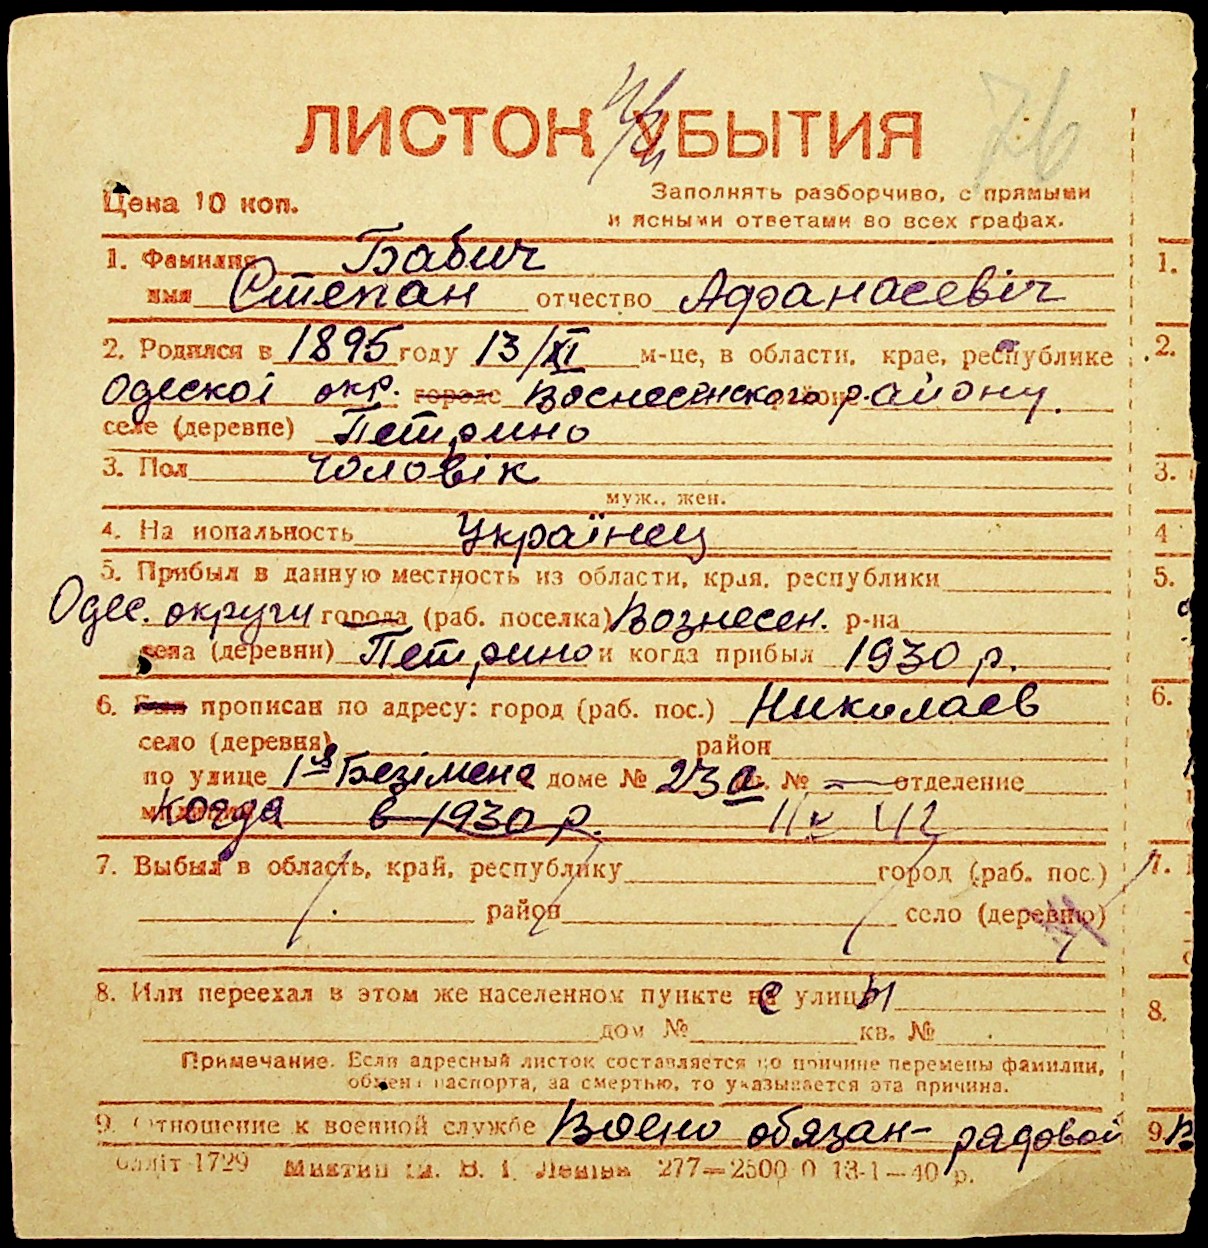 ЛИСТОК УБЫТИЯ 76
Цена 10 коп.
Заполнять разборчиво, с прямыми
и ясными ответами во всех графах.
1. Фамилия Бабич
имя Степан отчество Афанасевіч
2. Родился в 1895 году 13/XI м-це, в области, крае, республике
Одескої окр. городе Воснесенского району.
селе (деревне) Петрино
3. Пол чоловік
муж., жен.
4. На иональность Українец
5. Прибыл в данную местность из области, края, республики
Одес. округи города (раб. поселка) Вознесен. р-на
села (деревни) Петрино и когда прибыл 1930 р.
6. Был прописан по адресу: город (раб. пос.) Николаев
село (деревня) район
по улице 1я Безімена доме № 23а № отделение
когда в 1930 р.
7. Выбыл в область, край, республику город (раб. пос.)
район село (деревню)
8. Или переехал в этом же населенном пункте с улицы
дом № кв. №
Примечание. Если адресный листок составляется по причине перемены фамилии,
обмена паспорта, за смертью, то указывается эта причина.
9. Отношение к военной службе Воено обязан- рядовой
1729 277—2500 0 13-1—40 р.
1.
2.
3.
4
5.
6.
7.
8.
9.